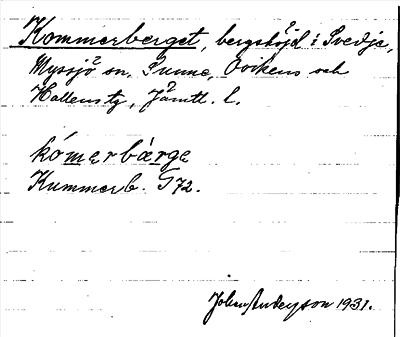 Kommerberget, bergshöjd i Svedje,
Myssjö sn, Sunne, Ovikens och
Hallens tg, Jämtl. l.
kómerbàrge
Kummerb. G72.
Johan Anderson 1931.